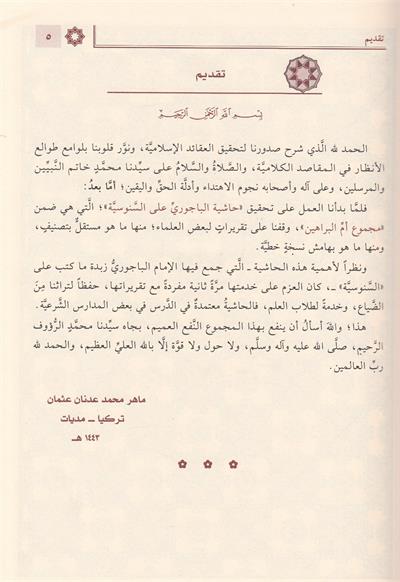 تقديم
٥
تقديم
بِسْمِ اللَّهِ الرَّحْمَنِ الرَّحِيمِ
الحمد لله الَّذي شرح صدورنا لتحقيق العقائد الإسلاميَّة، ونوَّر قلوبنا بلوامع طوالع
الأنظار في المقاصد الكلاميَّة، والصَّلاةُ والسَّلامُ على سيِّدنا محمَّدٍ خاتم النَّبيِّين
والمرسلين، وعلى آله وأصحابه نجوم الاهتداء وأدلَّة الحقِّ واليقين؛ أمَّا بعدُ:
فلمَّا بدأنا العمل على تحقيق «حاشية الباجوريِّ على السَّنوسيَّة»؛ الَّتي هي ضمن
«مجموع أمِّ البراهين»، وقفنا على تقريراتٍ لبعض العلماء؛ منها ما هو مستقلٌّ بتصنيفٍ،
ومنها ما هو بهامش نسخةٍ خطيَّة.
ونظراً لأهمية هذه الحاشية ـ الَّتي جمع فيها الإمام الباجوريُّ زبدة ما كتب على
«السَّنوسيَّة» ـ، كان العزم على خدمتها مرَّةً ثانية مفردةً مع تقريراتها، حفظاً لتراثنا مِنَ
الضَّياع، وخدمةً لطلاب العلم، فالحاشيةُ معتمدةٌ في الدَّرس في بعض المدارس الشرعيَّة.
هذا؛ واللهَ أسألُ أن ينفع بهذا المجموع النَّفع العميم، بجاه سيِّدنا محمَّدٍ الرَّؤوف
الرَّحيمِ، صلَّى الله عليه وآله وسلَّم، ولا حول ولا قوَّة إلَّا بالله العليِّ العظيم، والحمد لله
ربِّ العالمين.
ماهر محمد عدنان عثمان
تركيا ــ مديات
١٤٤٣ هـ